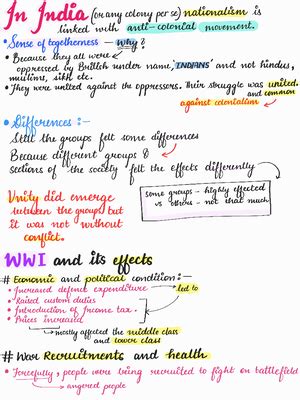 In India (or any colony per se) nationalism is
linked with anti-colonial movement.
• Sense of togetherness - why?
• Because they all were
oppressed by British under name, 'INDIANS' and not hindus,
muslims, sikh etc.
• They were united against the oppressors. Their struggle was united
and common
against colonialism
• Differences :-
Still the groups felt some differences
Because different groups &
sections of the society felt the effects differently
some groups - highly effected
vs others - not that much
Unity did emerge
between the groups but
it was not without
conflict.
WWI and its effects
# Economic and political condition:-
• Increased defence expenditure
led to
• Raised custom duties
• Introduction of Income tax.
• Prices increased
mostly affected the middle class
and lower class
# War Recruitments and health
• Forcefully, people were being recruited to fight on battlefield
angered people